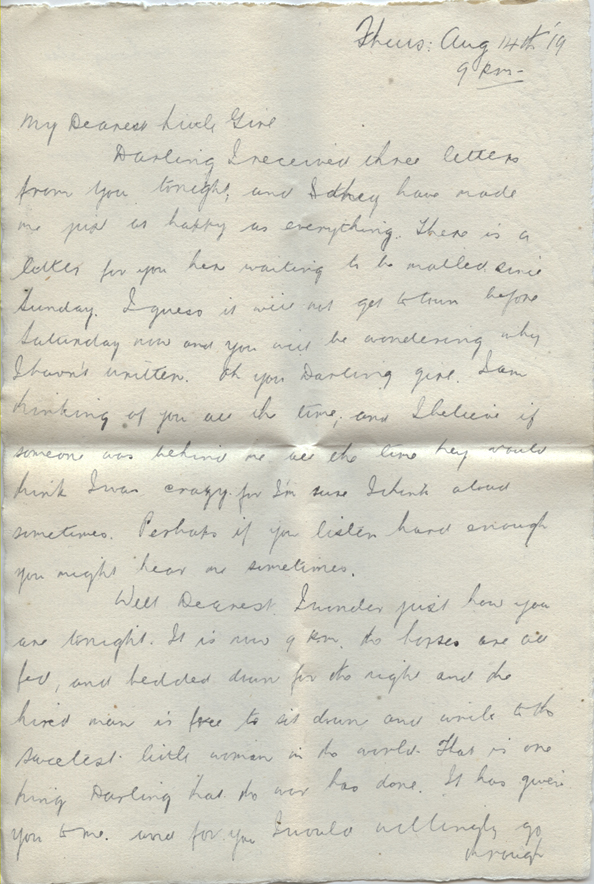 Thurs: Aug 14th '19
9 P.M.
My Dearest Little Girl
Darling I received three letters
from you tonight, and they have made
me just as happy as everything. There is a
letter for you here waiting to be mailed since
Sunday. I guess it will not get to town before
Saturday now and you will be wondering why
I havn't written. Oh you Darling girl. I am
thinking of you all the time, and I believe if
someone was behind me all the time they would
think I was crazy for I'm sure I think aloud
sometimes. Perhaps if you listen hard enough
you might hear me sometimes.
Well Dearest I wonder just how you
are tonight. It is now 9 P.M. the horses are all
fed, and bedded down for the night and the
hired man is free to sit down and write to the
sweetest little woman in the world. That is one
thing Darling that the war has done. It has given
you to me. and for you I would willingly go
through